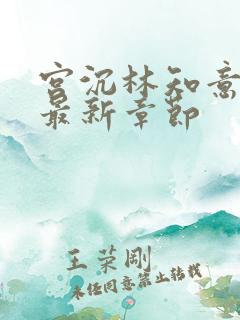 宫沉林知意
最新章节
王荣刚
未经同意禁止转载